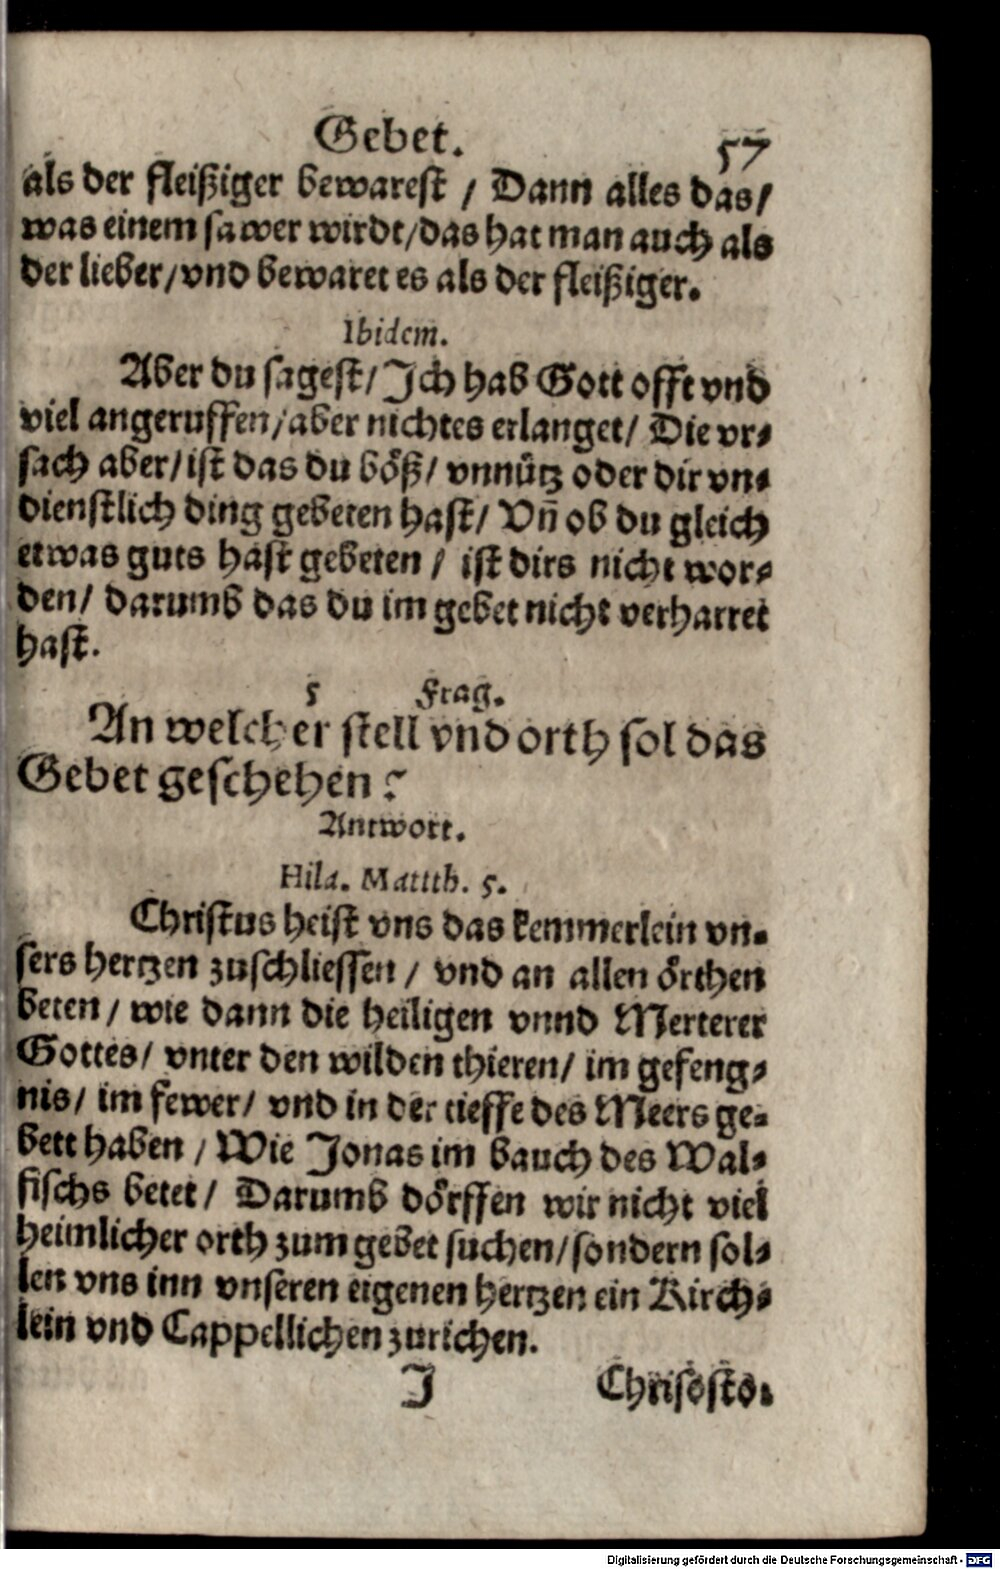 Gebet. 57
als der fleißiger bewarest / Dann alles das/
was einem sawer wirdt/das hat man auch als
der lieber/vnd bewaret es als der fleißiger.
Ibidem.
Aber du sagest/Ich hab Gott offt vnd
viel angeruffen/aber nichtes erlanget/ Die vr⸗
sach aber/ist das du böß/ vnnütz oder dir vn⸗
dienstlich ding gebeten hast/ Vn̄ ob du gleich
etwas guts hast gebeten / ist dirs nicht wor⸗
den/ darumb das du im gebet nicht verharret
hast.
5 Frag.
An welcher stell vnd orth sol das
Gebet geschehen?
Antwort.
Hila. Mattth. 5.
Christus heist vns das kemmerlein vn⸗
sers hertzen zuschliessen / vnd an allen örthen
beten / wie dann die heiligen vnnd Merterer
Gottes/ vnter den wilden thieren/ im gefeng⸗
nis/ im fewer/ vnd in der tieffe des Meers ge⸗
bett haben / Wie Jonas im bauch des Wal⸗
fischs betet / Darumb dörffen wir nicht viel
heimlicher orth zum gebet suchen/sondern sol⸗
len vns inn vnseren eigenen hertzen ein Kirch⸗
lein vnd Cappellichen zurichen.
J Chrisosto⸗
Digitalisierung gefördert durch die Deutsche Forschungsgemeinschaft - DFG